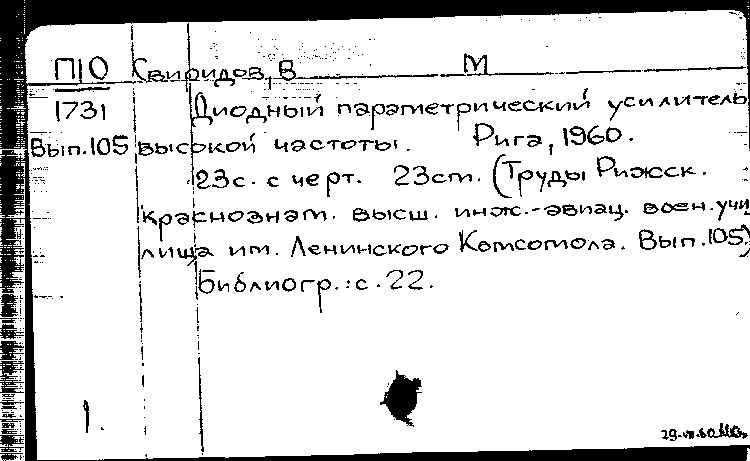 П10 Свиридов, В М
1731 Диодный параметрический усилитель
Вып.105 высокой частоты. Рига, 1960.
23с. с черт. 23см. (Труды Рижск.
краснознам. высш. инж.-авиац. воен. учи
лища им. Ленинского Комсомола. Вып.105)
Библиогр.: с. 22.
1.